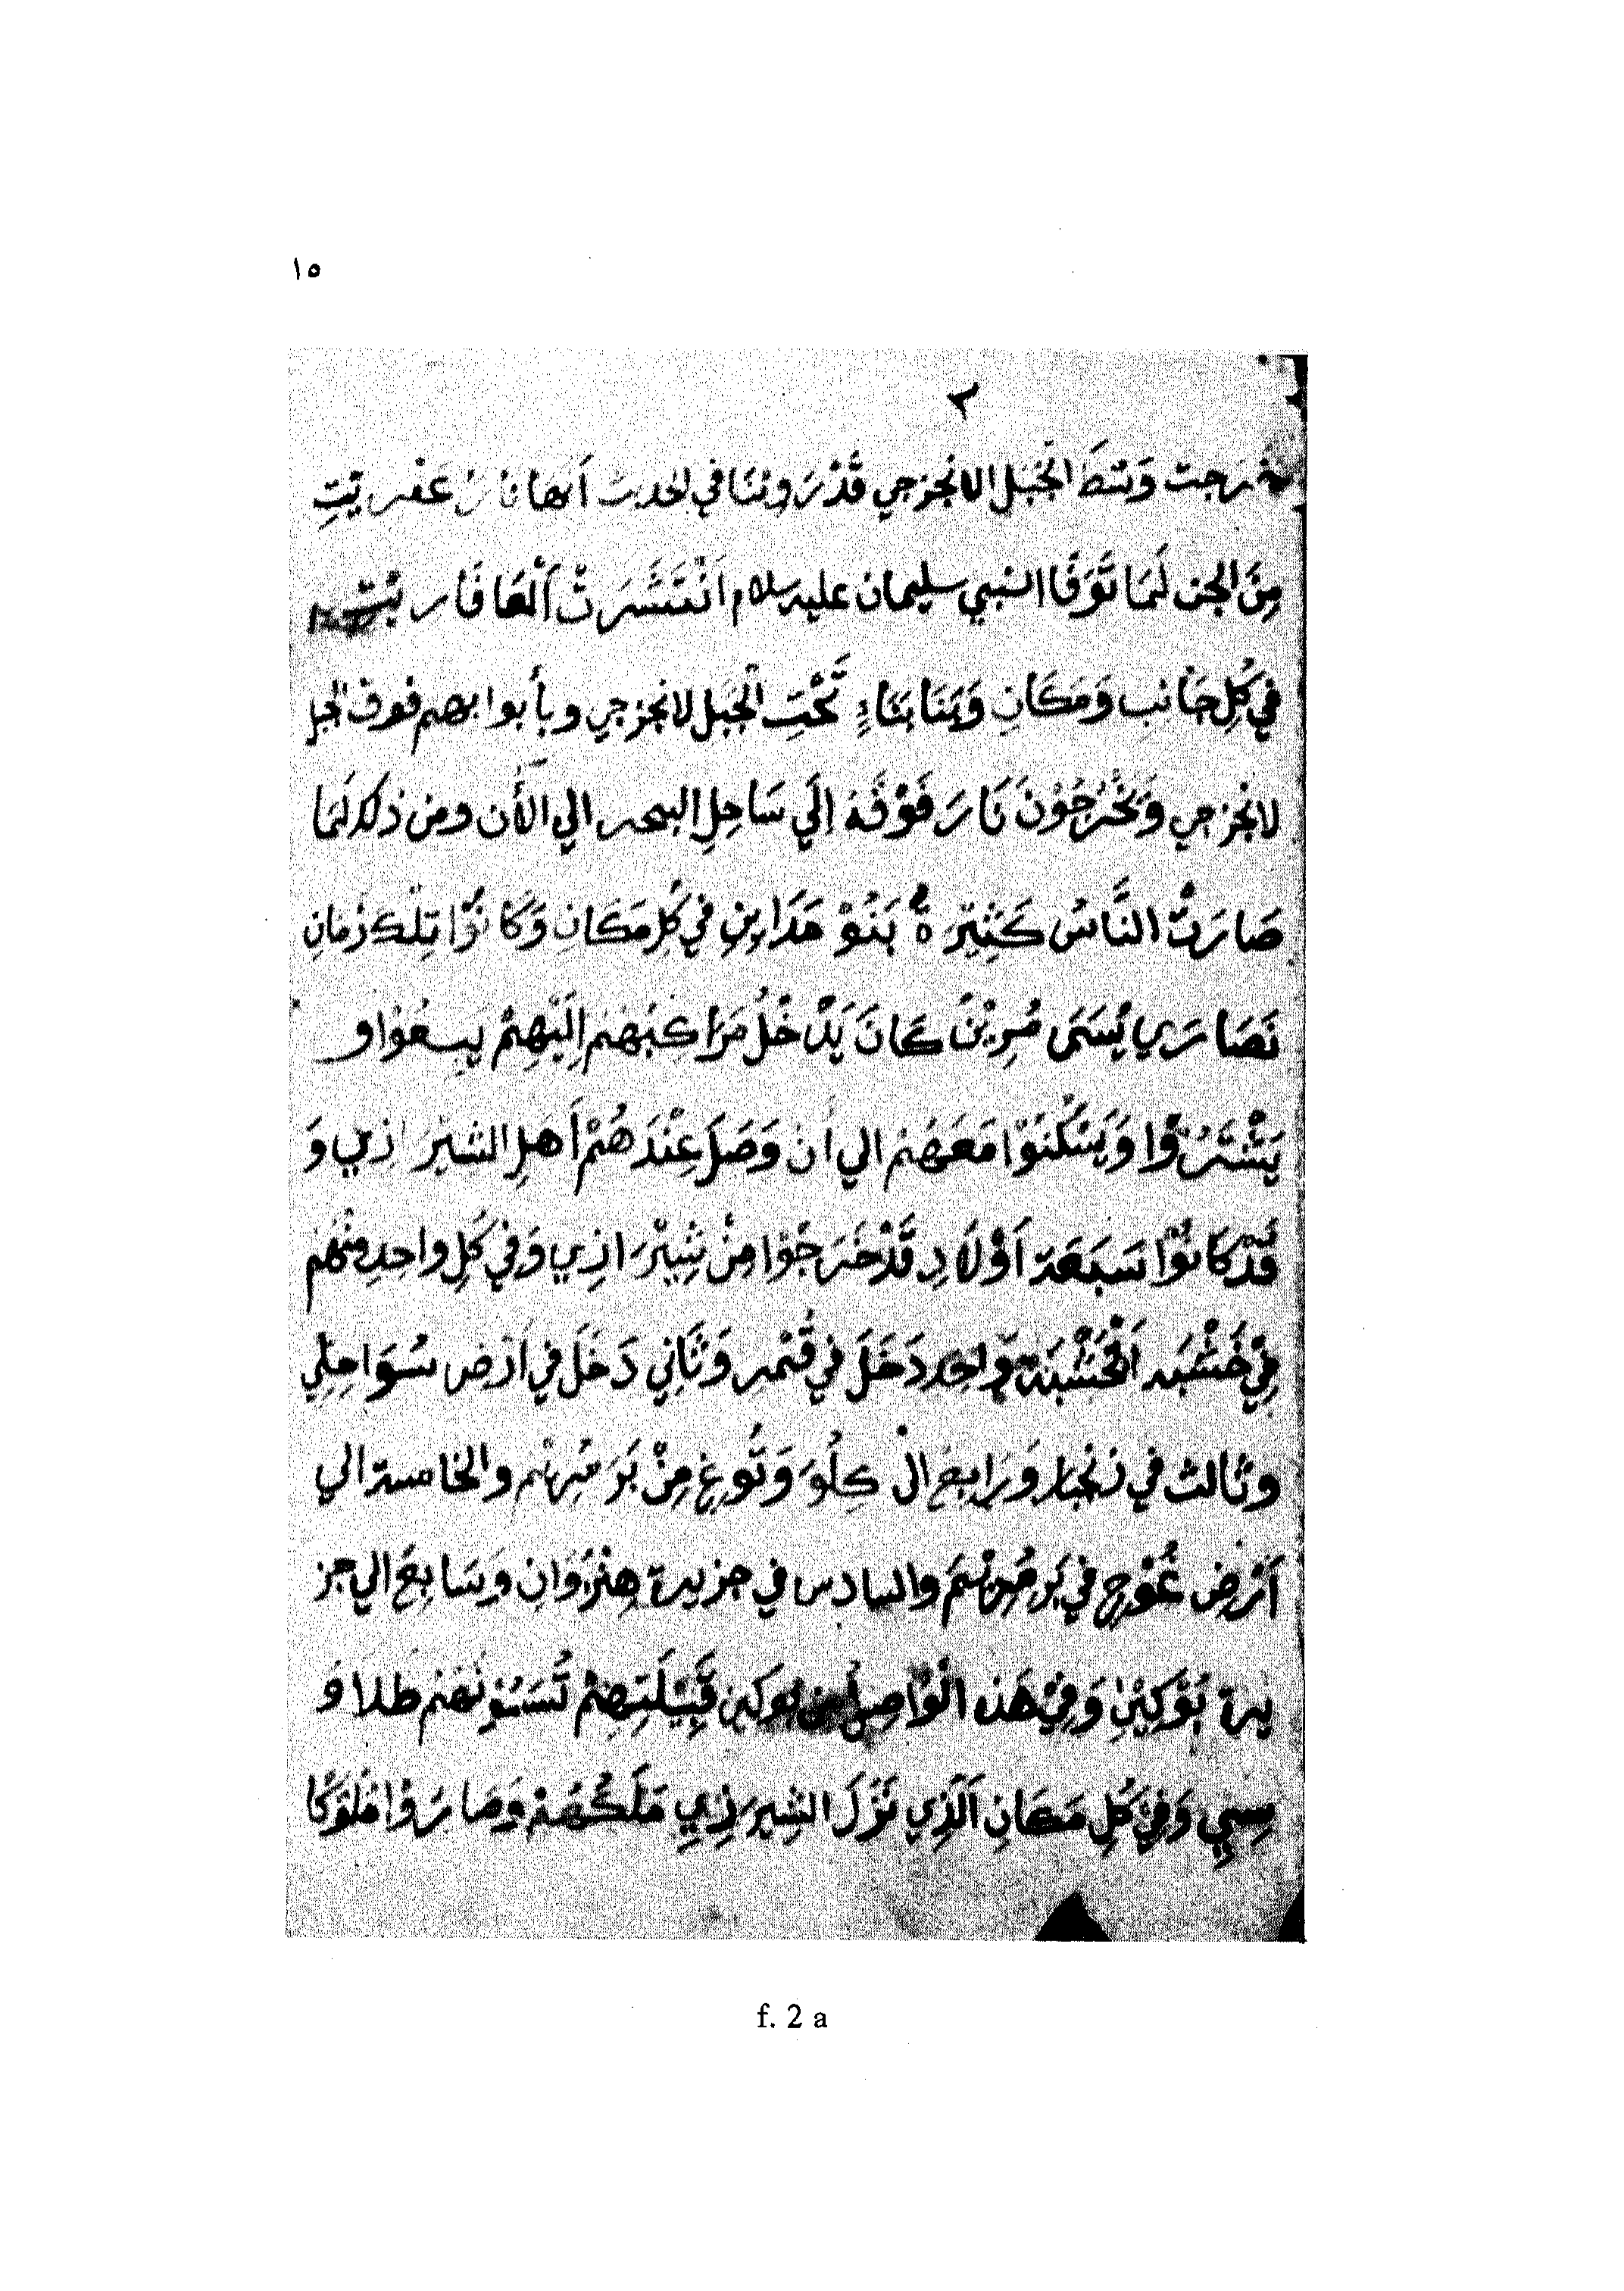 ١٥
٢
خرجت وَسَطَ الجَبَل الانجزجي قَدْرَ وينَا في الحديث أنها نار عفريتِ
مِنَ الجن لَمَا تَوَفَّا النبي سليمان عليه سلام اَنْتَشَرَتْ اَلْعَافَاريتُ
في كُلِ جَانب وَمَكَانِ وَبَنَا بَنَاءٍ تَّحْتِ الْجَبَل لانجزجي وبأبوابهم فوق الجبل
لانجزجي وَيَخْرجُوْنَ نَارَ فَوْقَهُ اِلَي سَاحِلِ البحر الي الأن ومن ذلك لَمَا
صَارَتُ النَّاسُ كَثِيْرَةُ بَنُوْ مَدَايِنِ في كُلِ مَكَانِ وَكَانُوْا تِلْكَ زمَانِ
نَصَارَي يُسَمَى مُرِيْنَ كَانَ يَدْخُلُ مَرَاكِبُهُمْ اِلَيْهِمْ يبِيعُوْا و
يَشْتَرُوْا وَيَسْكُنُوْا مَعَهُمْ الي أن وَصَلَ عِنْدَهُمْ أَهلِ الشيْرَازي وَ
قَدْ كَانُوْا سَبعَة اَوْلَادِ قَدْ خَرَجَوْا مِنْ شِيْرَازِي وَفي كُلِ واحِدِ منْهُم
فِيْ خَشْبَه اَلْخَشْبَة واحِد دَخَلَ في قُمْرِ وَثَاني دَخَلَ في اَرْضِ سُوَاحِلِي
وثالث في زنجبار وَرَابِع الْ كِلُوَ وَتُوغِ مِنْ بَرَ مْرِيْمِ والخامسة الي
اَرْضِ غُوْجِ في بَر مْرِيْمَ والسادس في جزيرة هِنْزُوَانِ وَسَابِعَ الي جز
يرة بُوْكِيْنِ وَفِيْ هَذه الْوَاصِل من بوكين قَبِيْلَتِهِمْ تُسَمُوْنَهُمْ طلا وُ
مِسِي وَفِيْ كُلِ مَكَانِ اَلَّذِي نَزَلَ الشِيرَزِي مَلَكُهُمْ وَصَارَوْا مُلُوْكًا
f. 2 a